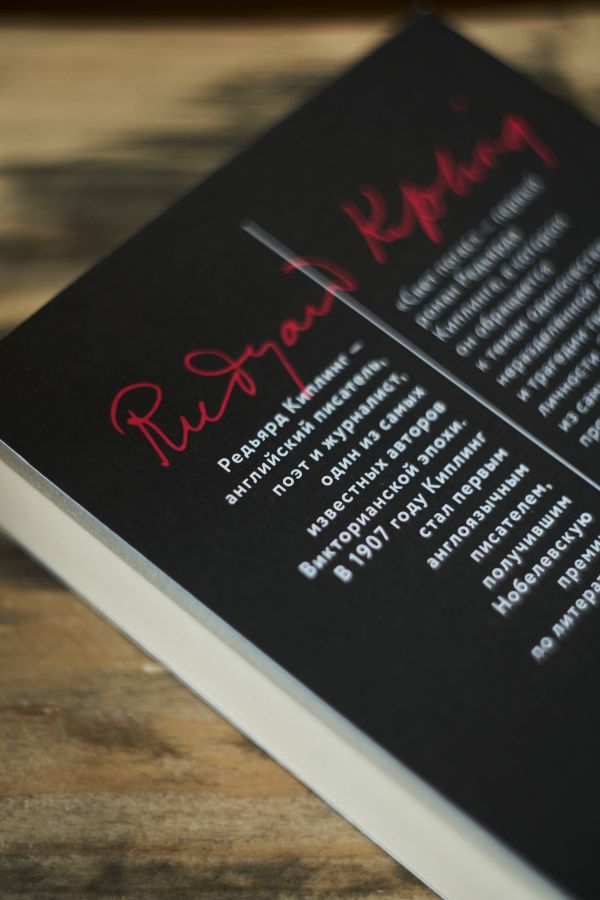 Rudyard Kipling
Редьярд Киплинг –
английский писатель,
поэт и журналист,
один из самых
известных авторов
Викторианской эпохи.
В 1907 году Киплинг
стал первым
англоязычным
писателем,
получившим
Нобелевскую
преми
по литерат
«Свет погас» – первый
роман Редьярда
Киплинга, в котором
он обращается
к темам одиночества
неразделенной
и трагедии
личности
из сам